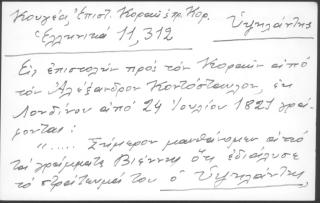 Κουγέα, Ἐπιστ. Κοραῆ πρ. Κορ. Ὑψηλάντης
Ἑλληνικά 11, 312
Εἰς ἐπιστολήν πρός τόν Κοραῆν ἀπό
τόν Ἀλέξανδρον Κοντόσταυλον, ἐκ
Λονδίνου ἀπό 24 Ἰουλίου 1821 γρά-
φονται:
"..... Σήμερον μανθάνομεν ἀπό
τά γράμματα Βιέννης ὅτι ἐδιάλυσε
τό στράτευμά του ὁ Ὑψηλάντης,